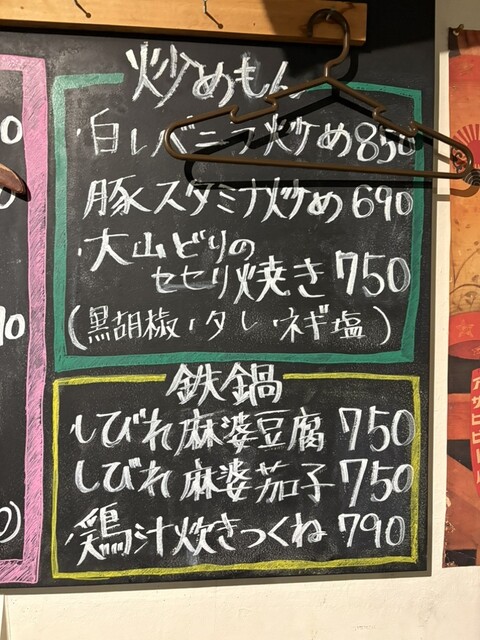 炒めもん
・白レバニラ炒め850
豚スタミナ炒め690
・大山どりの
セセリ焼き750
(黒胡椒・タレ・ネギ塩)
鉄鍋
しびれ麻婆豆腐750
しびれ麻婆茄子750
・鶏汁炊きつくね790
アサヒビール